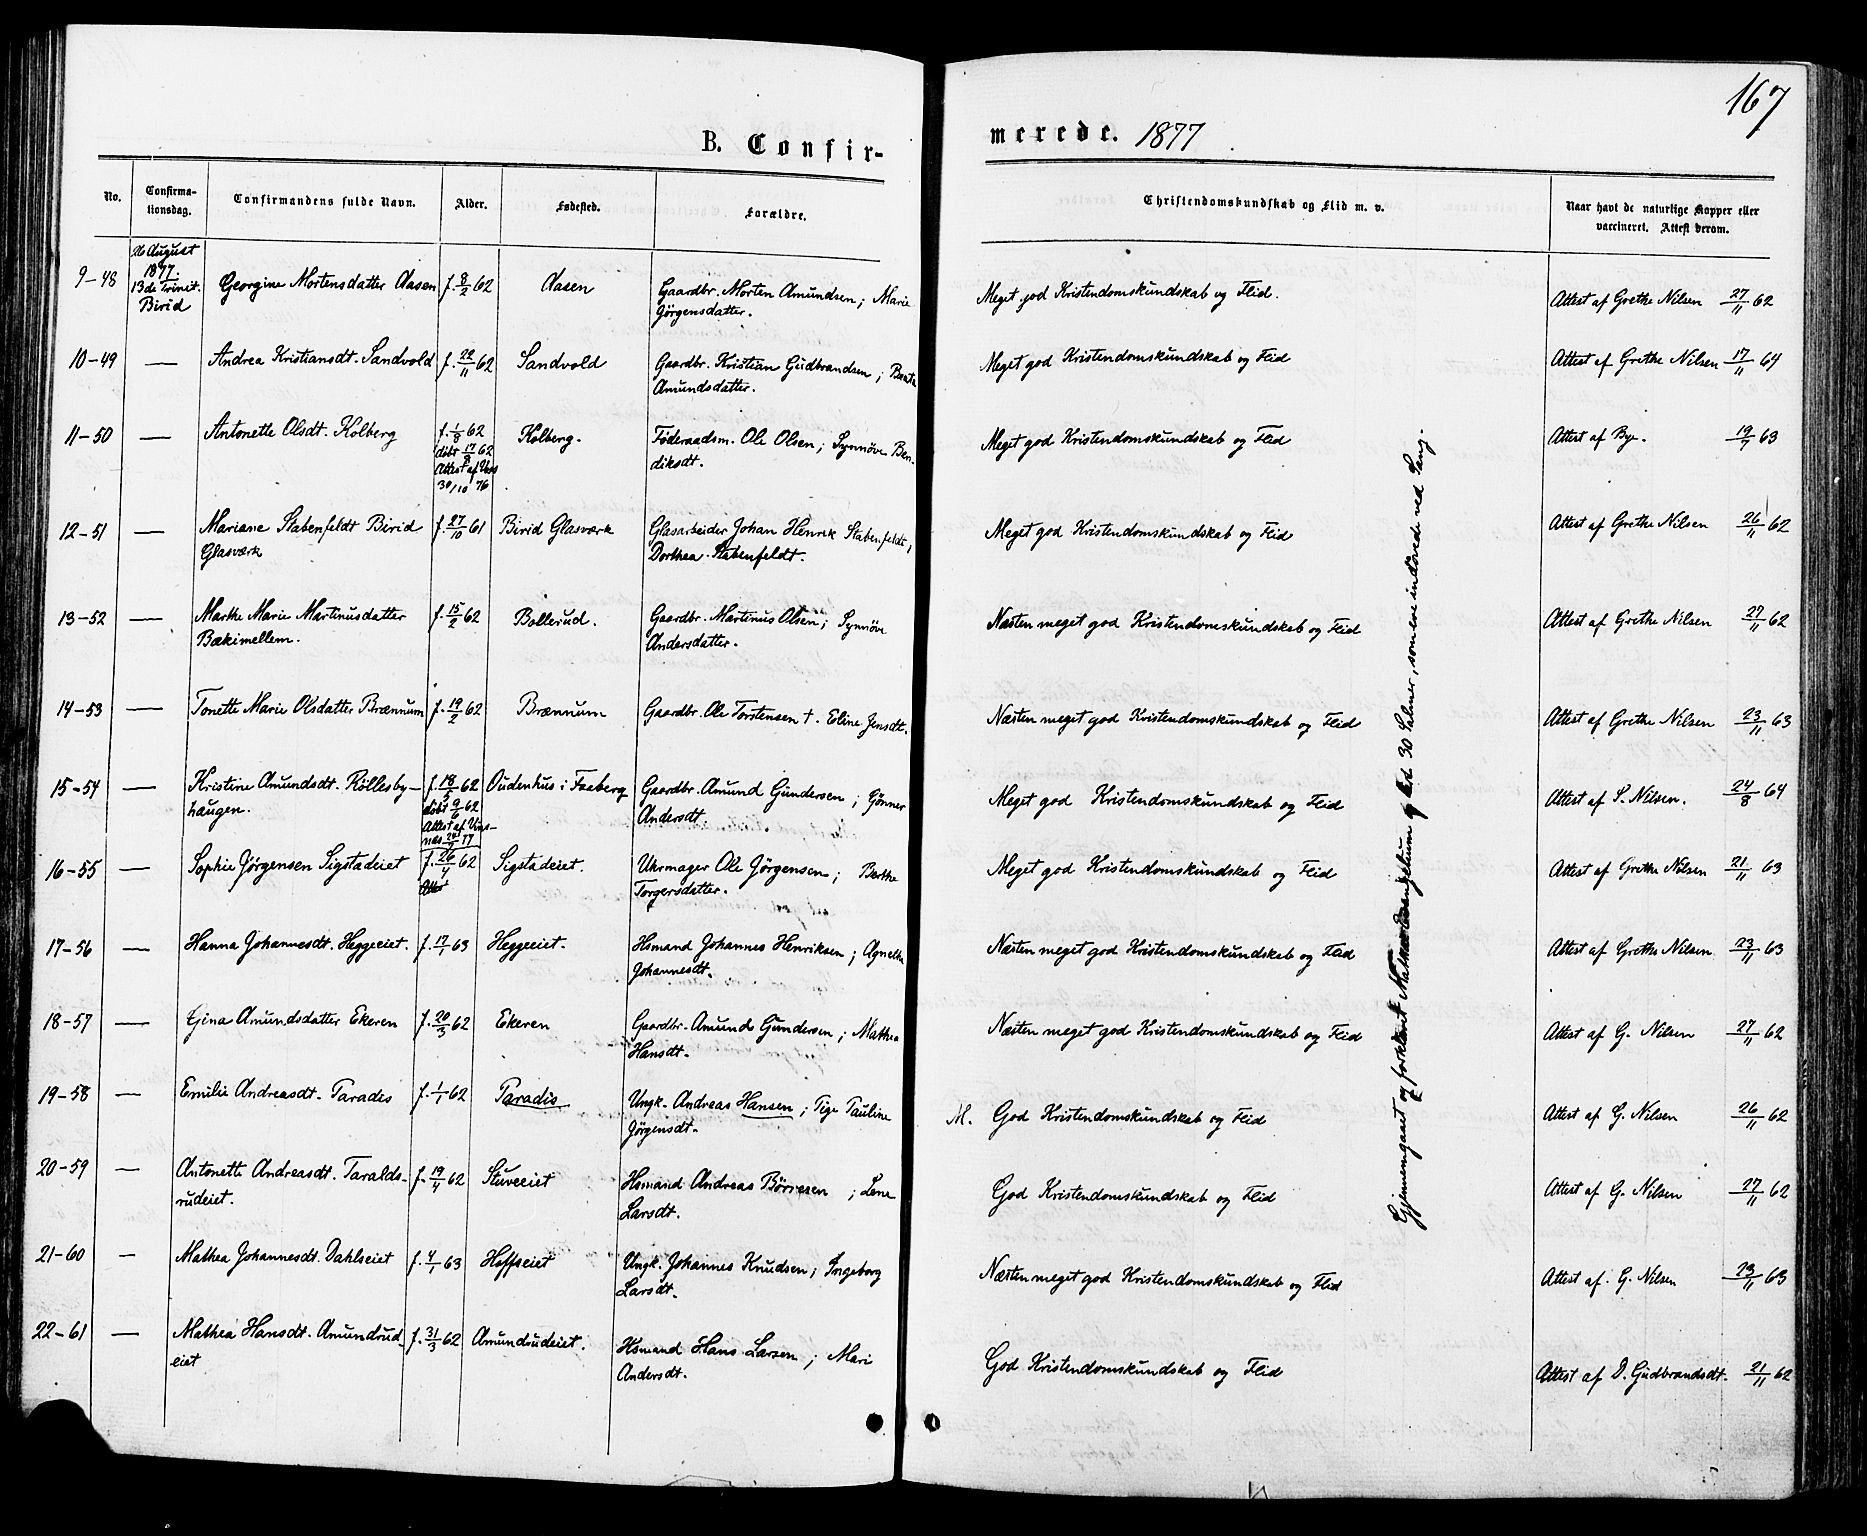 167
B. Confir-
merede. 1877
No.
Confirma-
tionsdag.
Confirmandens fulde Navn.
Alder.
Fødested.
Forældre.
Christendomskundskab og Flid m. v.
Naar havt de naturlige Kopper eller
vaccineret. Attest derom.
9-48
26 August
1877.
13de Trinit.
Birid
Georgine Mortensdatter Aasen
f. 8/2 62
Aasen
Gaardbr. Morten Amundsen; Marie
Jörgensdatter.
Meget god Kristendomskundskab og Flid.
Attest af Grethe Nilsen 27/11 62
10-49
—
Andrea Kristiansdt. Sandvold
f. 22/11 62
Sandvold
Gaardbr. Kristian Gudbrandsen; Beate
Amundsdatter.
Meget god Kristendomskundskab og Flid
Attest af Grethe Nilsen 17/11 64
11-50
—
Antonette Olsdt. Kolberg
f. 1/8 62
döbt 17/8 62
Attest af Vins
30/10 76
Kolberg.
Föderaadsm. Ole Olsen; Synnöve Ben-
diksdt.
Meget god Kristendomskundskab og Flid
Attest af Bye. 19/7 63
12-51
—
Mariane Stabenfeldt Birid
Glasværk
f. 27/10 61
Birid Glasværk
Glasarbeider Johan Henrik Stabenfeldt,
Dorthea Stabenfeldt.
Meget god Kristendomskundskab og Flid
Attest af Grethe Nilsen 26/11 62
13-52
—
Marthe Marie Martinusdatter
Bækimellem.
f. 15/2 62
Bollerud.
Gaardbr. Martinus Olsen; Synnöve
Andersdatter.
Næsten meget god Kristendomskundskab og Flid
Attest af Grethe Nilsen 27/11 62
14-53
—
Tonette Marie Olsdatter Brænnum
f. 19/2 62
Brænnum
Gaardbr. Ole Torstensen †. Eline Jensdt.
Næsten meget god Kristendomskundskab og Flid
Attest af Grethe Nilsen 23/11 63
15-54
—
Kristine Amundsdt. Röllesby-
haugen.
f. 18/5 62
döbt 9/6 62
Attest af Vins-
næs 24/7 77
Oudenhus i Faaberg
Gaardbr. Amund Gundersen; Gönner
Andersdt.
Meget god Kristendomskundskab og Flid
Attest af S. Nilsen. 24/8 64
16-55
—
Sophie Jörgensen Sigstadeiet
f. 26/4 62
Sigstadeiet.
Uhrmager Ole Jörgensen; Berthe
Torgersdatter.
Meget god Kristendomskundskab og Flid
Attest af Grethe Nilsen 21/11 63
17-56
—
Hanna Johannesdt. Heggeeiet.
f. 17/1 63
Heggeeiet.
Hsmand Johannes Henriksen; Agnethe
Johannesdt.
Næsten meget god Kristendomskundskab og Flid
Attest af Grethe Nilsen 23/11 63
18-57
—
Gina Amundsdatter Ekeren
f. 20/3 62
Ekeren
Gaardbr. Amund Gundersen; Mathea
Hansdt.
Næsten meget god Kristendomskundskab og Flid
Attest af G. Nilsen 27/11 62
19-58
—
Emilie Andreasdt. Paradis
f. 1/1 62
Paradis
Ungk. Andreas Hansen; Pige Pauline
Jörgensdt.
M. God Kristendomskundskab og Flid
Attest af G. Nilsen 26/11 62
20-59
—
Antonette Andreasdt. Taralds-
rudeiet.
f. 19/4 62
Stuveeiet
Hsmand Andreas Börresen; Lene
Larsdt.
God Kristendomskundskab og Flid
Attest af G. Nilsen 27/11 62
21-60
—
Mathea Johannesdt. Dahlseiet
f. 4/1 63
Hoffseiet
Ungk. Johannes Knudsen; Ingeborg
Larsdt.
Næsten meget god Kristendomskundskab og Flid
Attest af. G. Nilsen 23/11 63
22-61
—
Mathea Hansdt. Amundrud-
eiet
f. 31/3 62
Amundrudeiet.
Hsmand Hans Larsen; Mari
Andersdt.
God Kristendomskundskab og Flid
Attest af D. Gudbrandsdt. 21/11 62
Gjennemgaaet og forklaret Evangelium og lært 30 Salmer, som ere indövede ved Sang.